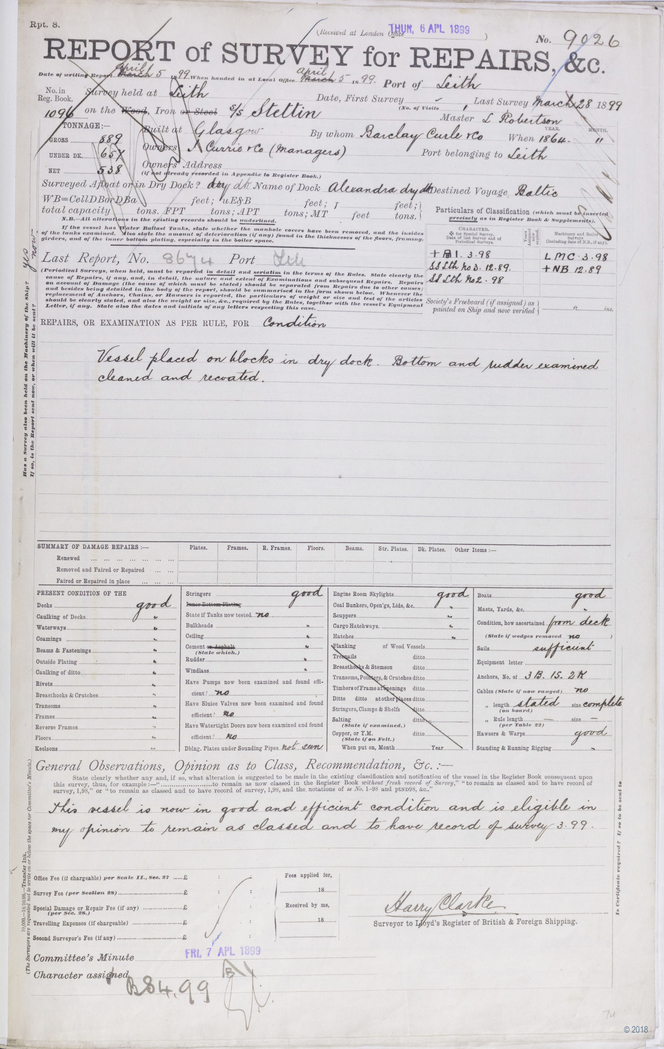 Rpt. 8.
(Received at London Office THUR, 6 APL 1899 )
No. 9026
REPORT of SURVEY for REPAIRS, &c.
Date of writing Report March April 5 1899. When handed in at Local Office March April 5 1899. Port of Leith
No. in Reg. Book. Survey held at Leith Date, First Survey Last Survey March 28 1899
(No. of Visits )
1096 on the Wood, Iron or Steel S/S Stettin Master L Robertson
TONNAGE:— Built at Glasgow By whom Barclay Curle & Co When 1864 YEAR. MONTH.
GROSS 889 Owners A Currie & Co (Managers) Port belonging to Leith
UNDER DK. 657
NET 538 Owners' Address
(if not already recorded in Appendix to Register Book.)
Surveyed Afloat or in Dry Dock? dry dk Name of Dock Alexandra dry dk Destined Voyage Baltic
total capacity tons. FPT tons; APT tons; MT feet tons.
N.B.—All alterations in the existing records should be underlined.
If the vessel has Water Ballast Tanks, state whether the manhole covers have been removed, and the insides of the tanks examined. Also state the amount of deterioration (if any) found in the thicknesses of the floors, framing, girders, and of the inner bottom plating, especially in the boiler space.
Particulars of Classification (which must be inserted precisely as in Register Book & Supplements).
+ A1. 3.98 L M C. 3.98
SS Lth No 3. 12.89. + NB 12.89
SS Lth No 2. 98
Last Report, No. 8674 Port Lth
(Periodical Surveys, when held, must be reported in detail and seriatim in the terms of the Rules. State clearly the cause of Repairs, if any, and, in detail, the nature and extent of Examinations and subsequent Repairs. Repairs on account of Damage (the cause of which must be stated) should be separated from Repairs due to other causes; and besides being detailed in the body of the report, should be summarised in the form shown below. Whenever the replacement of Anchors, Chains, or Hawsers is reported, the particulars of weight or size and test of the articles should be clearly stated, and also the weight or size, &c., required by the Rules, together with the vessel's Equipment Letter, if any. State also the dates and initials of any letters respecting this case.
Society's Freeboard (if assigned) as painted on Ship and now verified ft. ins.
REPAIRS, OR EXAMINATION AS PER RULE, FOR Condition
Vessel placed on blocks in dry dock. Bottom and rudder examined
cleaned and recoated.
SUMMARY OF DAMAGE REPAIRS:— Plates. Frames. R. Frames. Floors. Beams. Str. Plates. Dk. Plates. Other Items:—
Renewed
Removed and Faired or Repaired
Faired or Repaired in place
PRESENT CONDITION OF THE
Decks good
Caulking of Decks "
Waterways "
Coamings "
Beams & Fastenings "
Outside Plating "
Caulking of ditto "
Rivets "
Breasthooks & Crutches "
Transoms "
Frames "
Reverse Frames "
Floors "
Keelsons "
Stringers good
Inner Bottom Plating
State if Tanks now tested. no
Bulkheads "
Ceiling "
Cement or Asphalt "
(State which.)
Rudder "
Windlass "
Have Pumps now been examined and found efficient? no
Have Sluice Valves now been examined and found efficient? no
Have Watertight Doors now been examined and found efficient? no
Dblng. Plates under Sounding Pipes not seen
Engine Room Skylights good
Coal Bunkers, Open'gs, Lids, &c. "
Scuppers "
Cargo Hatchways "
Hatches "
Planking of Wood Vessels
Treenails ditto
Breasthooks & Stemson ditto
Transoms, Pointers, & Crutches ditto
Timbers of Frame at openings ditto
Ditto ditto at other places ditto
Stringers, Clamps & Shelfs ditto
Salting ditto
(State if examined.)
Copper, or Y.M. ditto
(State if on Felt.)
When put on, Month Year
Boats good
Masts, Yards, &c. "
Condition, how ascertained from deck
(State if wedges removed no )
Sails sufficient
Equipment letter
Anchors, No. of 3 B. 1S. 2K
Cables (State if now ranged) no
" length stated size complete
(on board)
" Rule length — size —
(per Table 22)
Hawsers & Warps good
Standing & Running Rigging "
General Observations, Opinion as to Class, Recommendation, &c.:—
State clearly whether any and, if so, what alteration is suggested to be made in the existing classification and notification of the vessel in the Register Book consequent upon this survey, thus, for example:—"
This vessel is now in good and efficient condition and is eligible in
my opinion to remain as classed and to have record of survey 3.99.
Office Fee (if chargeable) per Scale II., Sec. 27 £
Survey Fee (per Section 28) £
Special Damage or Repair Fee (if any) £
(per Sec. 28.)
Travelling Expenses (if chargeable) £
Second Surveyor's Fee (if any) £
Fees applied for, 18
Received by me, 18
Harry Clarke
Surveyor to Lloyd's Register of British & Foreign Shipping.
Committee's Minute FRI, 7 APL 1899
Character assigned
© 2018